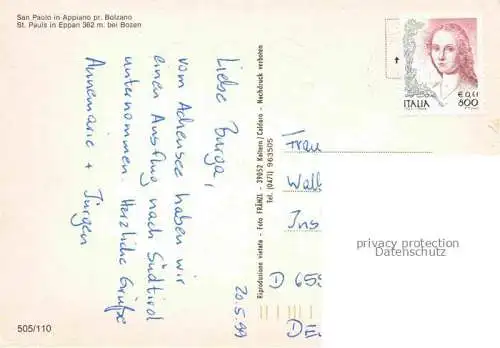 San Paolo in Appiano pr. Bolzano
St. Pauls in Eppan 362 m. bei Bozen
20.5.99
Liebe Burga,
vom Achensee haben wir
einen Ausflug nach Südtirol
unternommen. Herzliche Grüße
Annemarie + Jürgen
505/110
Riproduzione vietata - Foto FRÄNZL - 39052 Kaltern/Caldaro - Nachdruck verboten
Tel. (0471) 963505
€ 0,41
ITALIA 800
Frau
Wall
Ins
D 655
DE
privacy protection
oldthing.com